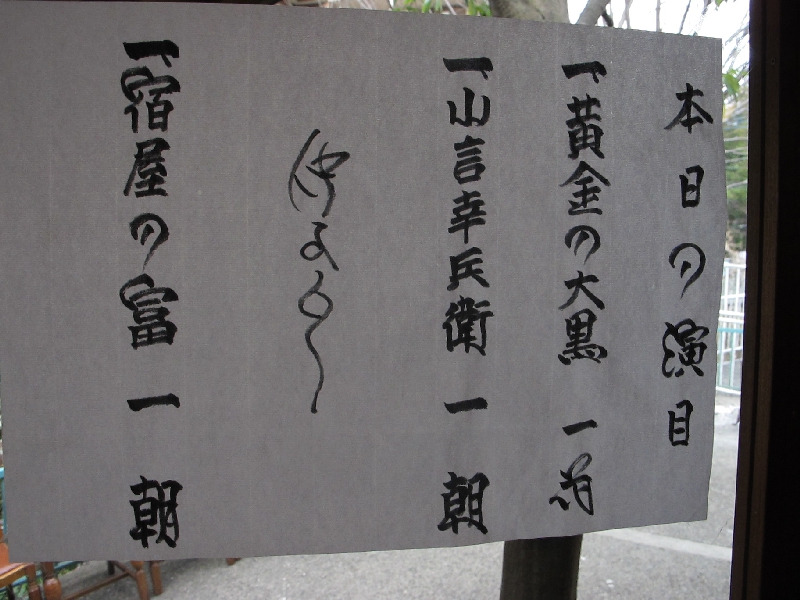 本日の演目
一、黄金の大黒 一
一、小言幸兵衛 一朝
一、宿屋の富 一朝